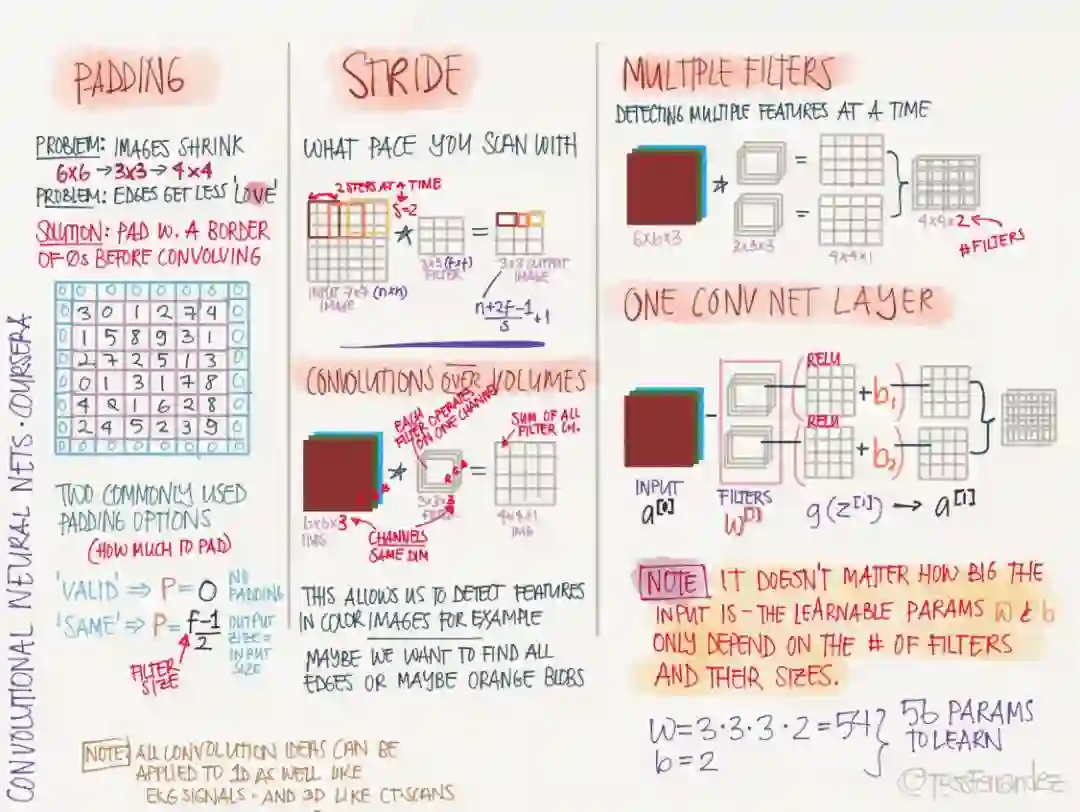 CONVOLUTIONAL NEURAL NETS · COURSERA
PADDING
PROBLEM: IMAGES SHRINK
6x6 → 3x3 → 4x4
PROBLEM: EDGES GET LESS 'LOVE'
SOLUTION: PAD W. A BORDER
OF 0s BEFORE CONVOLVING
0 0 0 0 0 0 0 0
0 3 0 1 2 7 4 0
0 1 5 8 9 3 1 0
0 2 7 2 5 1 3 0
0 0 1 3 1 7 8 0
0 4 2 1 6 2 8 0
0 2 4 5 2 3 9 0
0 0 0 0 0 0 0 0
TWO COMMONLY USED
PADDING OPTIONS
(HOW MUCH TO PAD)
'VALID' ⇒ P = 0 NO PADDING
'SAME' ⇒ P = f-1/2 OUTPUT SIZE = INPUT SIZE
FILTER
SIZE
NOTE ALL CONVOLUTION IDEAS CAN BE
APPLIED TO 1D AS WELL LIKE
EKG SIGNALS - AND 3D LIKE CT-SCANS
STRIDE
WHAT PACE YOU SCAN WITH
2 STEPS AT A TIME
S=2
* =
INPUT 7x7 (nxn)
IMAGE
3x3 (fxf)
FILTER
3x3 OUTPUT
IMAGE
n+2f-1/s +1
CONVOLUTIONS OVER VOLUMES
EACH
FILTER OPERATES
ON ONE CHANNEL
SUM OF ALL
FILTER CH.
* =
R G B
6x6x3
IMG
3x3x3
4x4x1
IMG
CHANNELS
SAME DIM
THIS ALLOWS US TO DETECT FEATURES
IN COLOR IMAGES FOR EXAMPLE
MAYBE WE WANT TO FIND ALL
EDGES OR MAYBE ORANGE BLOBS
MULTIPLE FILTERS
DETECTING MULTIPLE FEATURES AT A TIME
* = =
6x6x3
3x3x3
4x4x1
4x4x2
#FILTERS
ONE CONV NET LAYER
(RELU + b₁)
(RELU + b₂)
INPUT
a[0]
FILTERS
W[1]
g(z[1]) → a[1]
NOTE IT DOESN'T MATTER HOW BIG THE
INPUT IS - THE LEARNABLE PARAMS W & b
ONLY DEPEND ON THE # OF FILTERS
AND THEIR SIZES.
W = 3·3·3·2 = 54 } 56 PARAMS
b = 2 TO LEARN
@TessFernandez